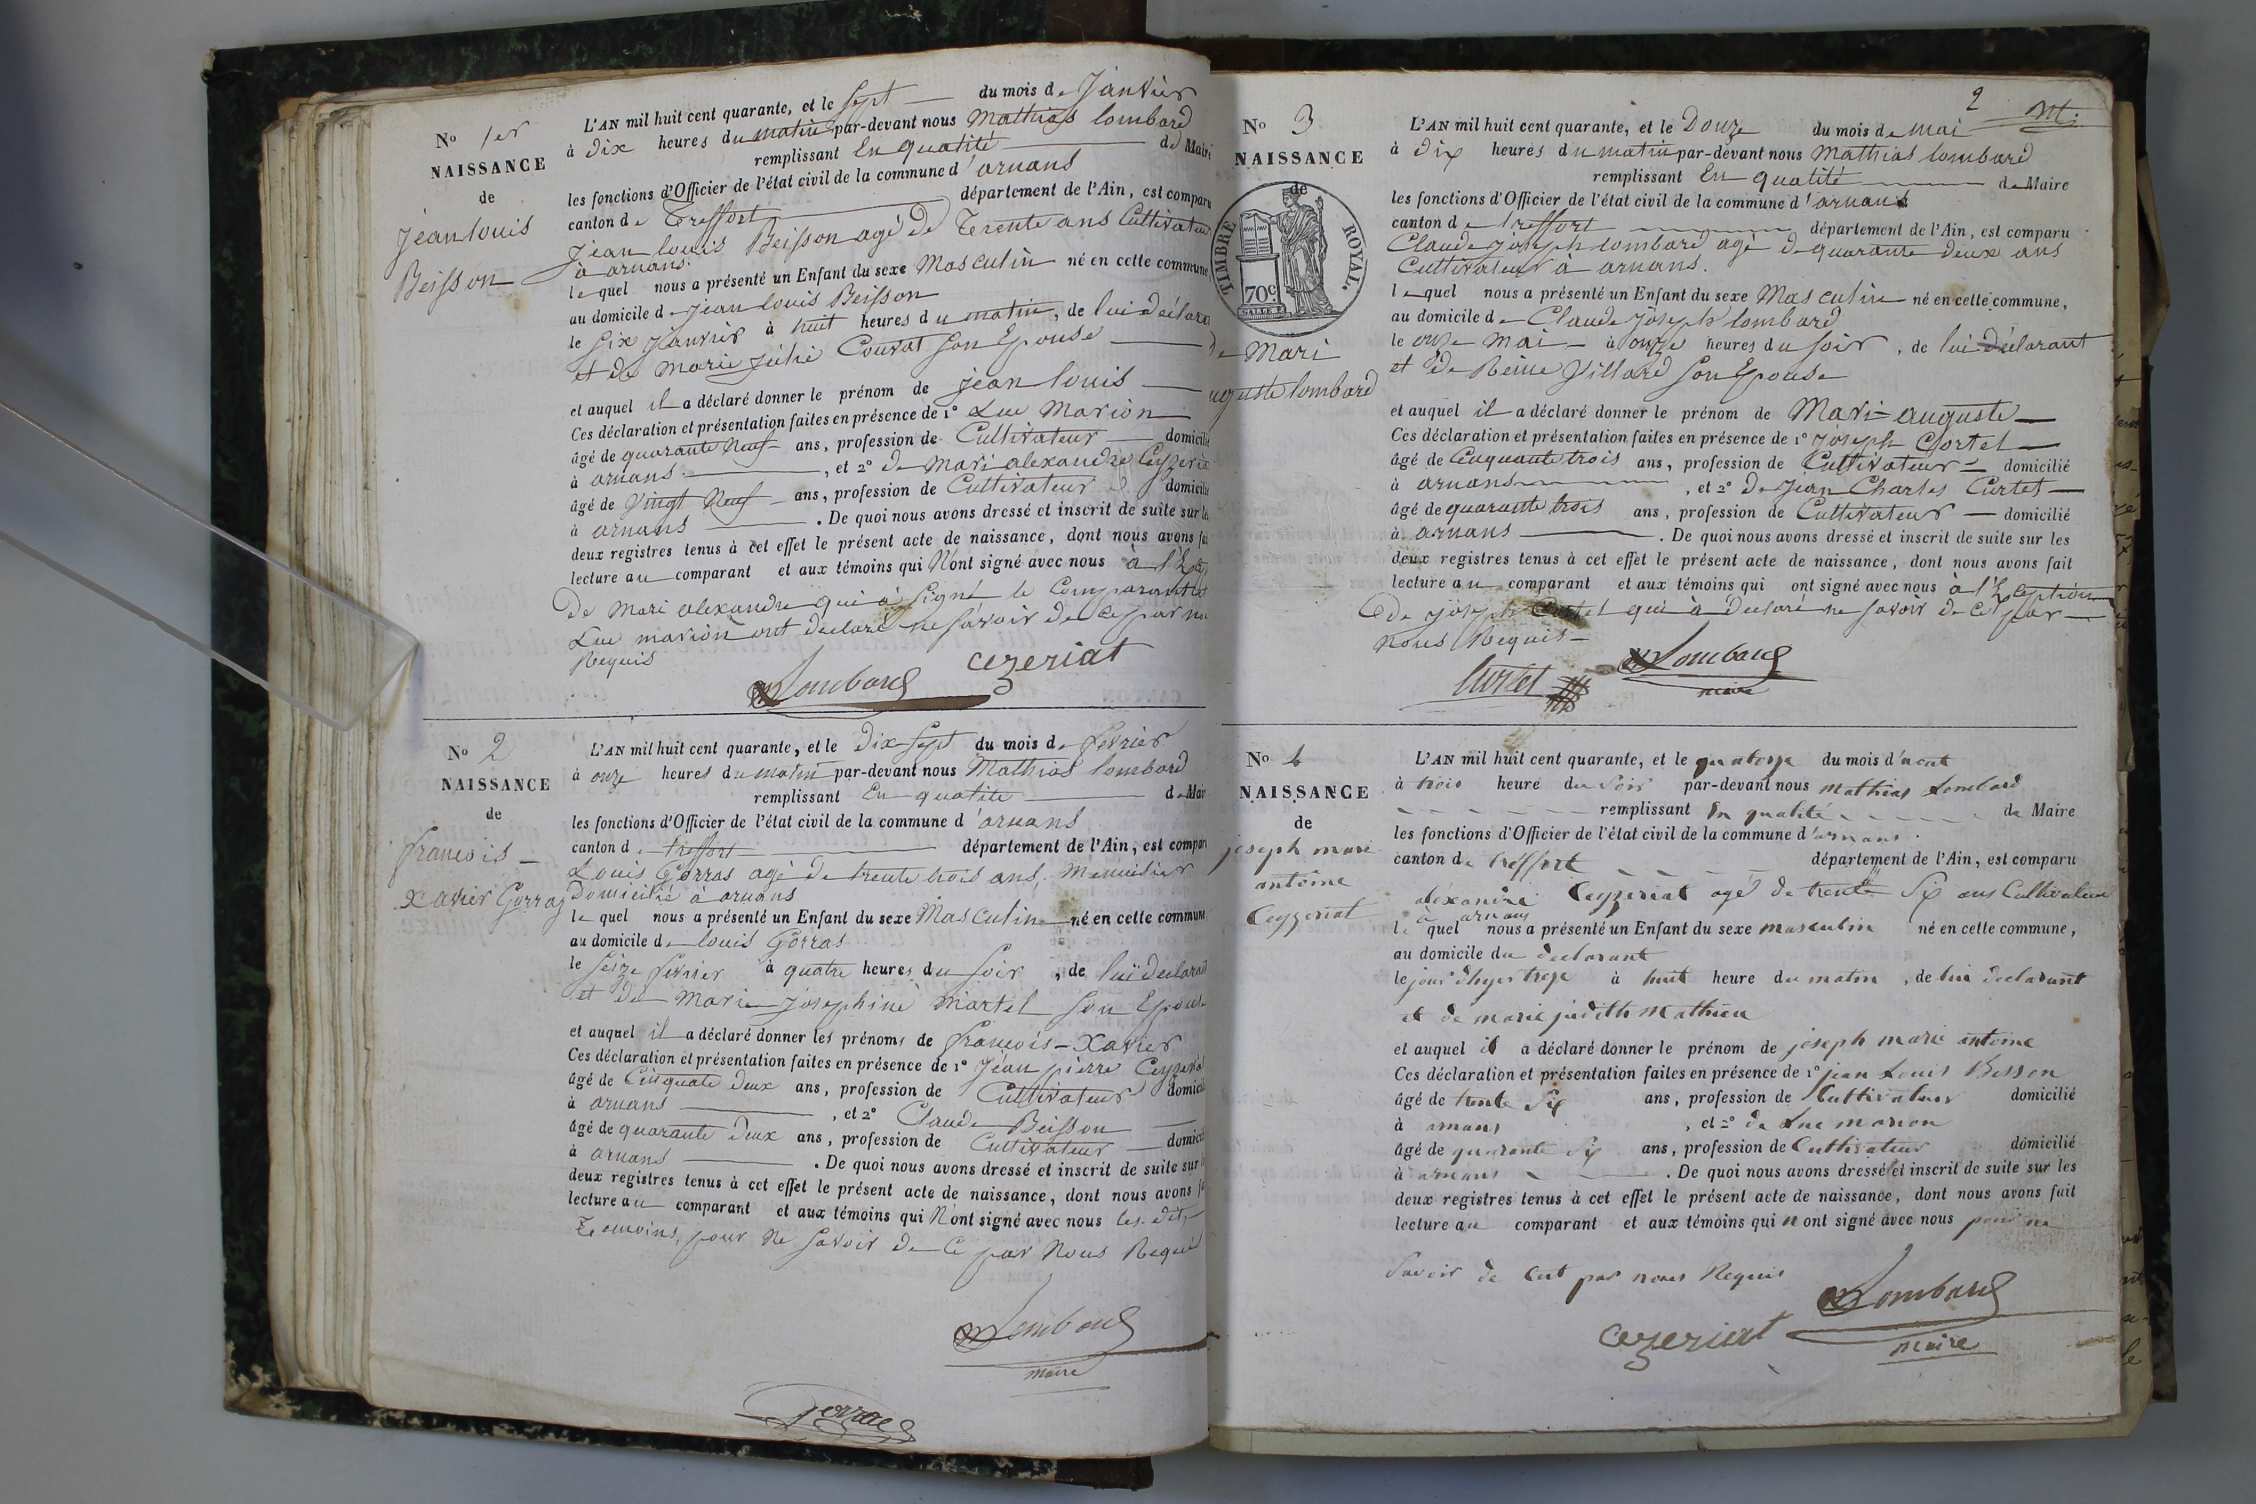 N° 1er
NAISSANCE
de
jean louis
Beisson
L'AN mil huit cent quarante, et le Sept du mois de Janvier
à dix heures du matin par-devant nous Mathias lombard
remplissant En qualité de Mair
les fonctions d'Officier de l'état civil de la commune d'arnans
canton de Treffort département de l'Ain, est comparu
Jean louis Beisson agé de Trente ans Cultivateur
à arnans.
lequel nous a présenté un Enfant du sexe Masculin né en cette commune
au domicile de jean louis Beisson
le Six Janvier à huit heures du matin, de lui déclara
et de Marie Julie Couvat Son Epouse
et auquel il a déclaré donner le prénom de jean louis
Ces déclaration et présentation faites en présence de 1° Luc Marion
âgé de quarante Neuf ans, profession de Cultivateur domicilié
à arnans, et 2° de Mari alexandre Ceyzeria
âgé de Vingt Neuf ans, profession de Cultivateur domicilié
à arnans. De quoi nous avons dressé et inscrit de suite sur les
deux registres tenus à cet effet le présent acte de naissance, dont nous avons fai
lecture au comparant et aux témoins qui N'ont signé avec nous à l'
De Mari alexandre qui a Signé le Comparant et
Luc marion ont declaré ne Savoir de ce par no
Requis
Lombard cezeriat
N° 2
NAISSANCE
de
francois
Xavier Gorras
L'AN mil huit cent quarante, et le Dix Sept du mois de Février
à onze heures du matin par-devant nous Mathias lombard
remplissant En qualité de Mair
les fonctions d'Officier de l'état civil de la commune d'arnans
canton de treffort département de l'Ain, est comparu
Louis Gorras agé de trente trois ans, Menuisier
Domicilié à arnans
lequel nous a présenté un Enfant du sexe Masculin né en cette commune
au domicile de louis Gorras
le Seize février à quatre heures du Soir, de lui declarant
et de Marie josephine Martel Son Epouse
et auquel il a déclaré donner les prénoms de francois-Xavier
Ces déclaration et présentation faites en présence de 1° Jean pierre Ceyzeria
âgé de Cinquate Deux ans, profession de Cultivateur domicilié
à arnans, et 2° Claude Beisson
âgé de quarante Deux ans, profession de Cultivateur domicilié
à arnans. De quoi nous avons dressé et inscrit de suite sur
deux registres tenus à cet effet le présent acte de naissance, dont nous avons fa
lecture au comparant et aux témoins qui N'ont signé avec nous les dits
Temoins, pour Ne Savoir de Ce par Nous Requis
Lombard
maire
Gorras
2
N° 3
NAISSANCE
de
TIMBRE ROYAL.
70c
de Mari
auguste lombard
L'AN mil huit cent quarante, et le Douze du mois de mai
à Dix heures du matin par-devant nous Mathias lombard
remplissant En qualité de Maire
les fonctions d'Officier de l'état civil de la commune d'arnans
canton de treffort département de l'Ain, est comparu
Claude joseph lombard agé de quarante deux ans
Cultivateur à arnans.
lequel nous a présenté un Enfant du sexe Masculin né en cette commune,
au domicile de Claude Joseph lombard
le onze Mai à onze heures du Soir, de lui déclarant
et de Reine Villard Son Epouse
et auquel il a déclaré donner le prénom de Mari-auguste
Ces déclaration et présentation faites en présence de 1° Joseph Cortet
âgé de Cinquante trois ans, profession de Cultivateur domicilié
à arnans, et 2° de Jean Charles Curtet
âgé de quarante trois ans, profession de Cultivateur domicilié
à arnans. De quoi nous avons dressé et inscrit de suite sur les
deux registres tenus à cet effet le présent acte de naissance, dont nous avons fait
lecture au comparant et aux témoins qui ont signé avec nous à l'Exeption
de joseph qui a declaré ne Savoir de ce par
nous Requis
Curtet Lombard
maire
N° 4
NAISSANCE
de
joseph marie
antoine
Ceyzeriat
L'AN mil huit cent quarante, et le quatorze du mois d'aout
à trois heure du Soir par-devant nous mathias Lombard
remplissant En qualité de Maire
les fonctions d'Officier de l'état civil de la commune d'arnans.
canton de treffort département de l'Ain, est comparu
aléxandre Ceyzeriat agé de trente Six ans Cultivateur
à arnans
lequel nous a présenté un Enfant du sexe masculin né en cette commune,
au domicile du declarant
le jour d'hyer treze à huit heure du matin, de lui declarant
et de marie judith Mathieu
et auquel il a déclaré donner le prénom de joseph marie antoine
Ces déclaration et présentation faites en présence de 1° jean Louis Besson
âgé de trente Six ans, profession de Cultivateur domicilié
à arnans, et 2° de Luc marion
âgé de quarante Six ans, profession de Cultivateur domicilié
à arnans. De quoi nous avons dressé et inscrit de suite sur les
deux registres tenus à cet effet le présent acte de naissance, dont nous avons fait
lecture au comparant et aux témoins qui n'ont signé avec nous pour ne
Savoir de Cest par nous Requis
Lombard
cezeriat maire